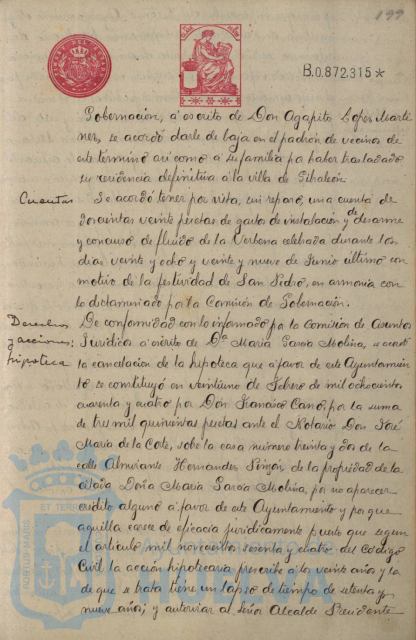 199
B.0.872.315*
Gobernación, á escrito de Don Agapito Lopez Marti
nez, se acordó darle de baja en el padrón de vecinos de
este término asi como á su familia por haber trasladado
su residencia definitiva á la villa de Gibraleón.
Cuentas Se acordó tener por vista, sin reparo, una cuenta de
doscientas veinte pesetas de gastos de instalación y de desarme
y consumo de fluido de la Verbena celebrada durante los
dias veinte y ocho y veinte y nueve de Junio último con
motivo de la festividad de San Pedro, en armonia con
lo dictaminado por la Comisión de Gobernación.
Derechos De conformidad con lo informado por la Comisión de Asuntos
y acciones: Juridicos á escrito de Dª Maria Garcia Molina, se acordó
hipoteca la cancelación de la hipoteca que á favor de este Ayuntamien
to se constituyó en veintiuno de Febrero de mil ochocientos
cuarenta y cuatro por Don Francisco Cano, por la suma
de tres mil quinientas pesetas ante el Notario Don José
Maria de la Cote, sobre la casa número treinta y dos de la
calle Almirante Hernandez Pinzón de la propiedad de la
citada Doña Maria Garcia Molina, por no aparecer
crédito alguno á favor de este Ayuntamiento y por que
aquella carece de eficacia juridicamente puesto que segun
el articulo mil novecientos sesenta y cuatro del Código
Civil la acción hipotecaria prescribe á los veinte años y la
de que se trata tiene un lapso de tiempo de setenta y
nueve años; y autorizar al Señor Alcalde Presidente